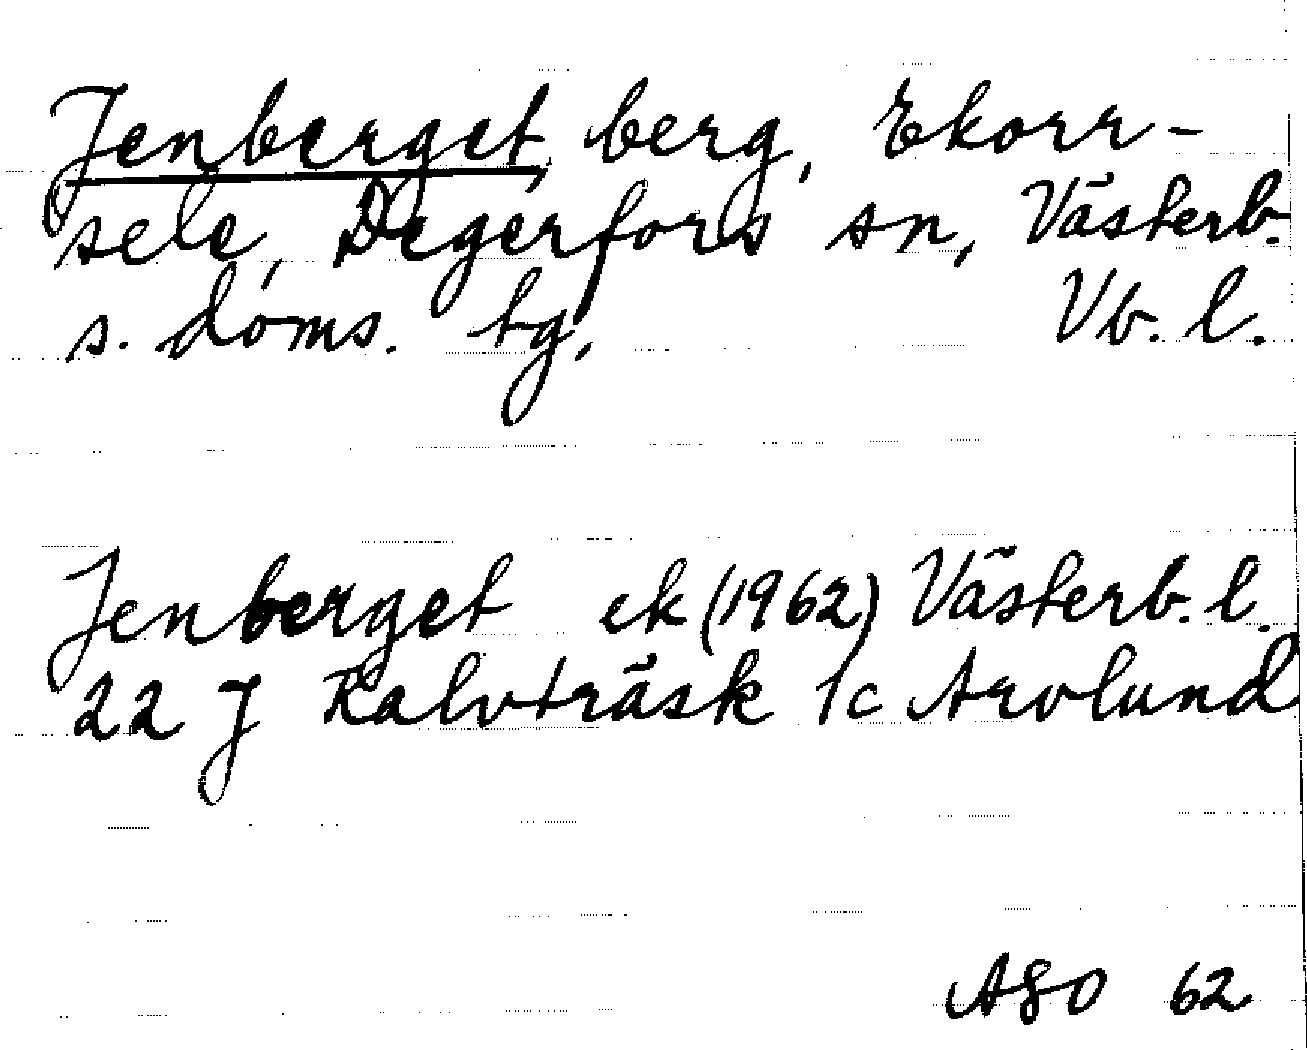 Jenberget, berg, Ekorr-
sele, Degerfors sn, Västerb.
s. doms. tg, Vb. l.
Jenberget ek (1962) Västerb. l.
22 J Kalvträsk 1c Arvlund
ASO 62